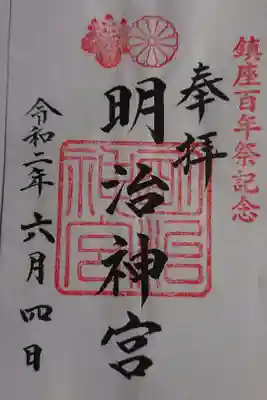 鎮座百年祭記念
奉拝
明治神宮
令和二年六月四日
明治神宮